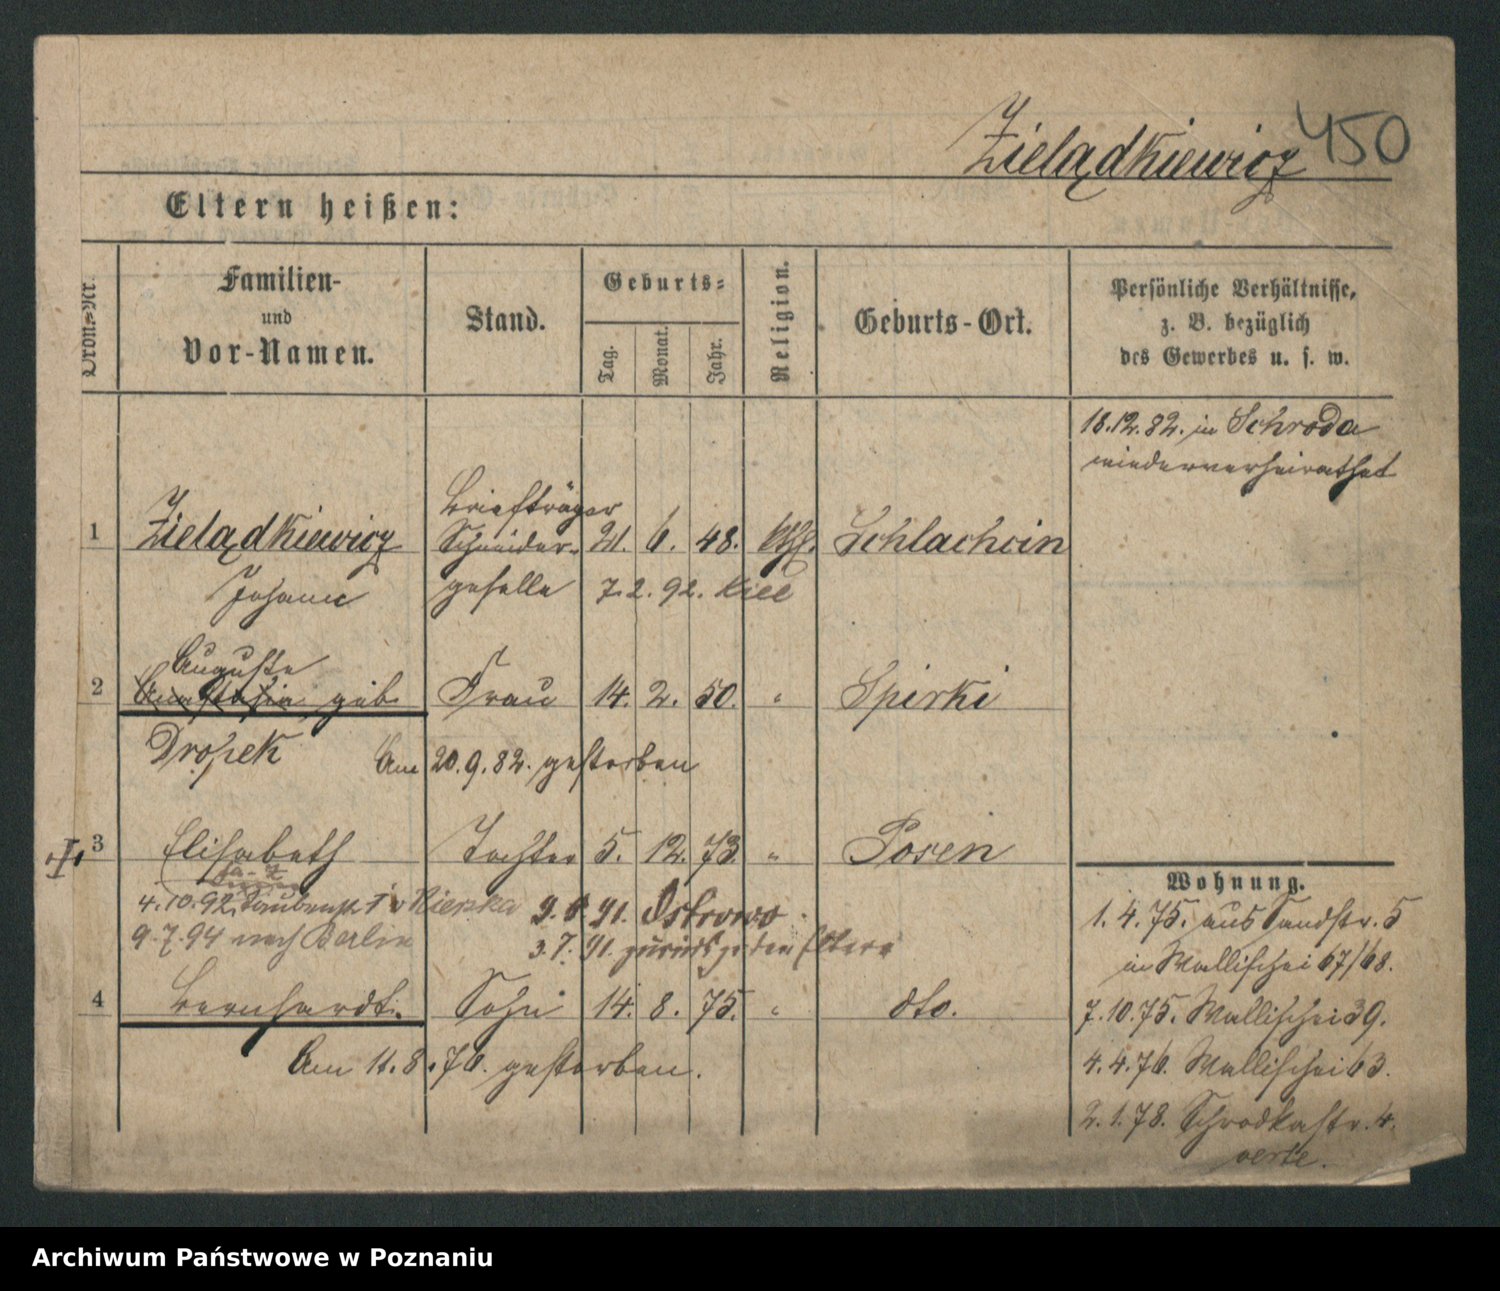 Zielądkiewicz 450
Eltern heißen:
Ordn.-Nr.
Familien-
und
Vor-Namen.
Stand.
Geburts-
Tag.
Monat.
Jahr.
Religion.
Geburts-Ort.
Persönliche Verhältnisse,
z. B. bezüglich
des Gewerbes u. s. w.
18.12.82. in Schroda
wiederverheirathet
Briefträger
1 Zielądkiewicz Schneider- 21. 6. 48. kth. Schlachcin
Johann geselle 7.2.92. Kiel
Auguste
2 geb. Frau 14. 2. 50. " Spirki
Dropek Am 20.9.82. gestorben
3 Elisabeth Tochter 5. 12. 73. " Posen
Wohnung.
4.10.92. Taubenstr. 9.6.91. Ostrowo
9.7.94 nach Berlin 3.7.91. zurück zu den Eltern
1.4.75. aus Sandstr. 5
in Wallischei 67/68.
4 Bernhardt. Sohn 14. 8. 75. " dto.
7.10.75. Wallischei 39.
Am 11.8.76. gestorben.
4.4.76. Wallischei 63.
2.1.78. Schrodkastr. 4.
verte.
Archiwum Państwowe w Poznaniu